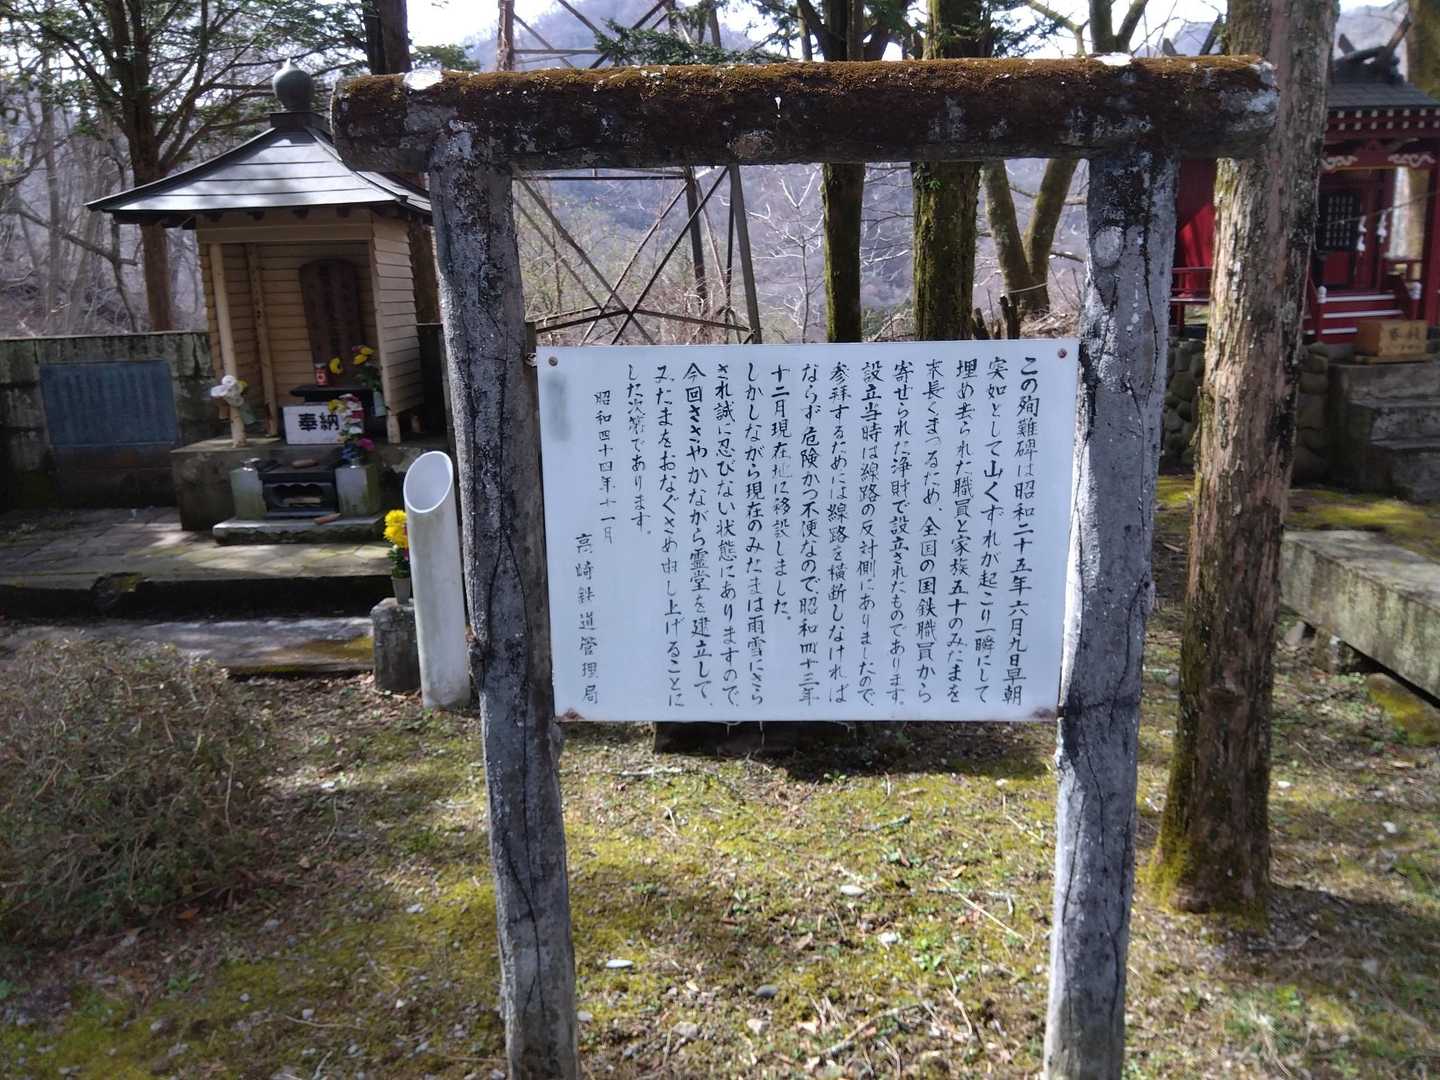 この殉難碑は昭和二十五年六月九日早朝
突如として山くずれが起こり一瞬にして
埋め去られた職員と家族五十のみたまを
末長くまつるため、全国の国鉄職員から
寄せられた浄財で設立されたものであります。
設立当時は線路の反対側にありましたので、
参拝するためには線路を横断しなければ
ならず危険かつ不便なので昭和四十三年
十二月現在地に移設しました。
しかしながら現在のみたまは雨雪にさら
され誠に忍びない状態にありますので、
今回ささやかながら霊堂を建立して、
みたまをおなぐさめ申し上げることに
した次第であります。
昭和四十四年十一月
高崎鉄道管理局
奉納